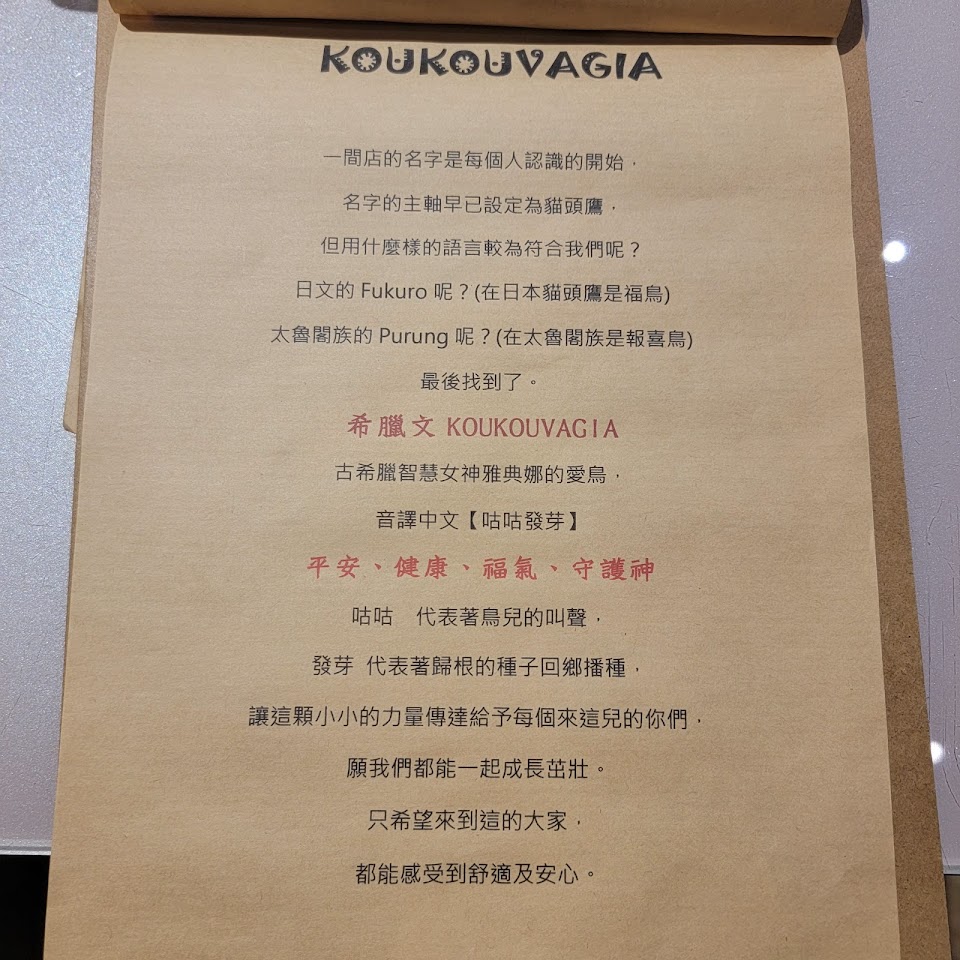 KOUKOUVAGIA
一間店的名字是每個人認識的開始，
名字的主軸早已設定為貓頭鷹，
但用什麼樣的語言較為符合我們呢？
日文的 Fukuro 呢？(在日本貓頭鷹是福鳥)
太魯閣族的 Purung 呢？(在太魯閣族是報喜鳥)
最後找到了。
希臘文 KOUKOUVAGIA
古希臘智慧女神雅典娜的愛鳥，
音譯中文【咕咕發芽】
平安、健康、福氣、守護神
咕咕　代表著鳥兒的叫聲，
發芽 代表著歸根的種子回鄉播種，
讓這顆小小的力量傳達給予每個來這兒的你們，
願我們都能一起成長茁壯。
只希望來到這的大家，
都能感受到舒適及安心。